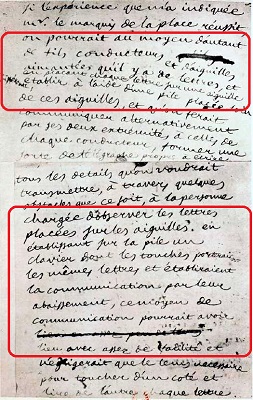 si l'expérience que m'a indiquée
mr. le marquis de la place réussit
on pourrait au moyen d'autant
de fils conducteurs et d'aiguilles
aimantées qu'il y a de lettres, et
en plaçant chaque lettre sur une aiguille
établir à l'aide d'une pile placée loin
de ces aiguilles, et qu'on ferait
communiquer alternativement
par ses deux extrémités à celles de
chaque conducteur, former une
sorte de télégraphe propre à écrire
tous les détails qu'on voudrait
transmettre, à travers quelques
obstacles que ce soit, à la personne
chargée d'observer les lettres
placées sur les aiguilles. en
établissant sur la pile un
clavier dont les touches porteraient
les mêmes lettres et établiraient
la communication par leur
abaissement, ce moyen de
communication pourrait avoir
lieu avec assez de facilité et
n'exigerait que le tems nécessaire
pour toucher d'un coté et
lire de l'autre chaque lettre.